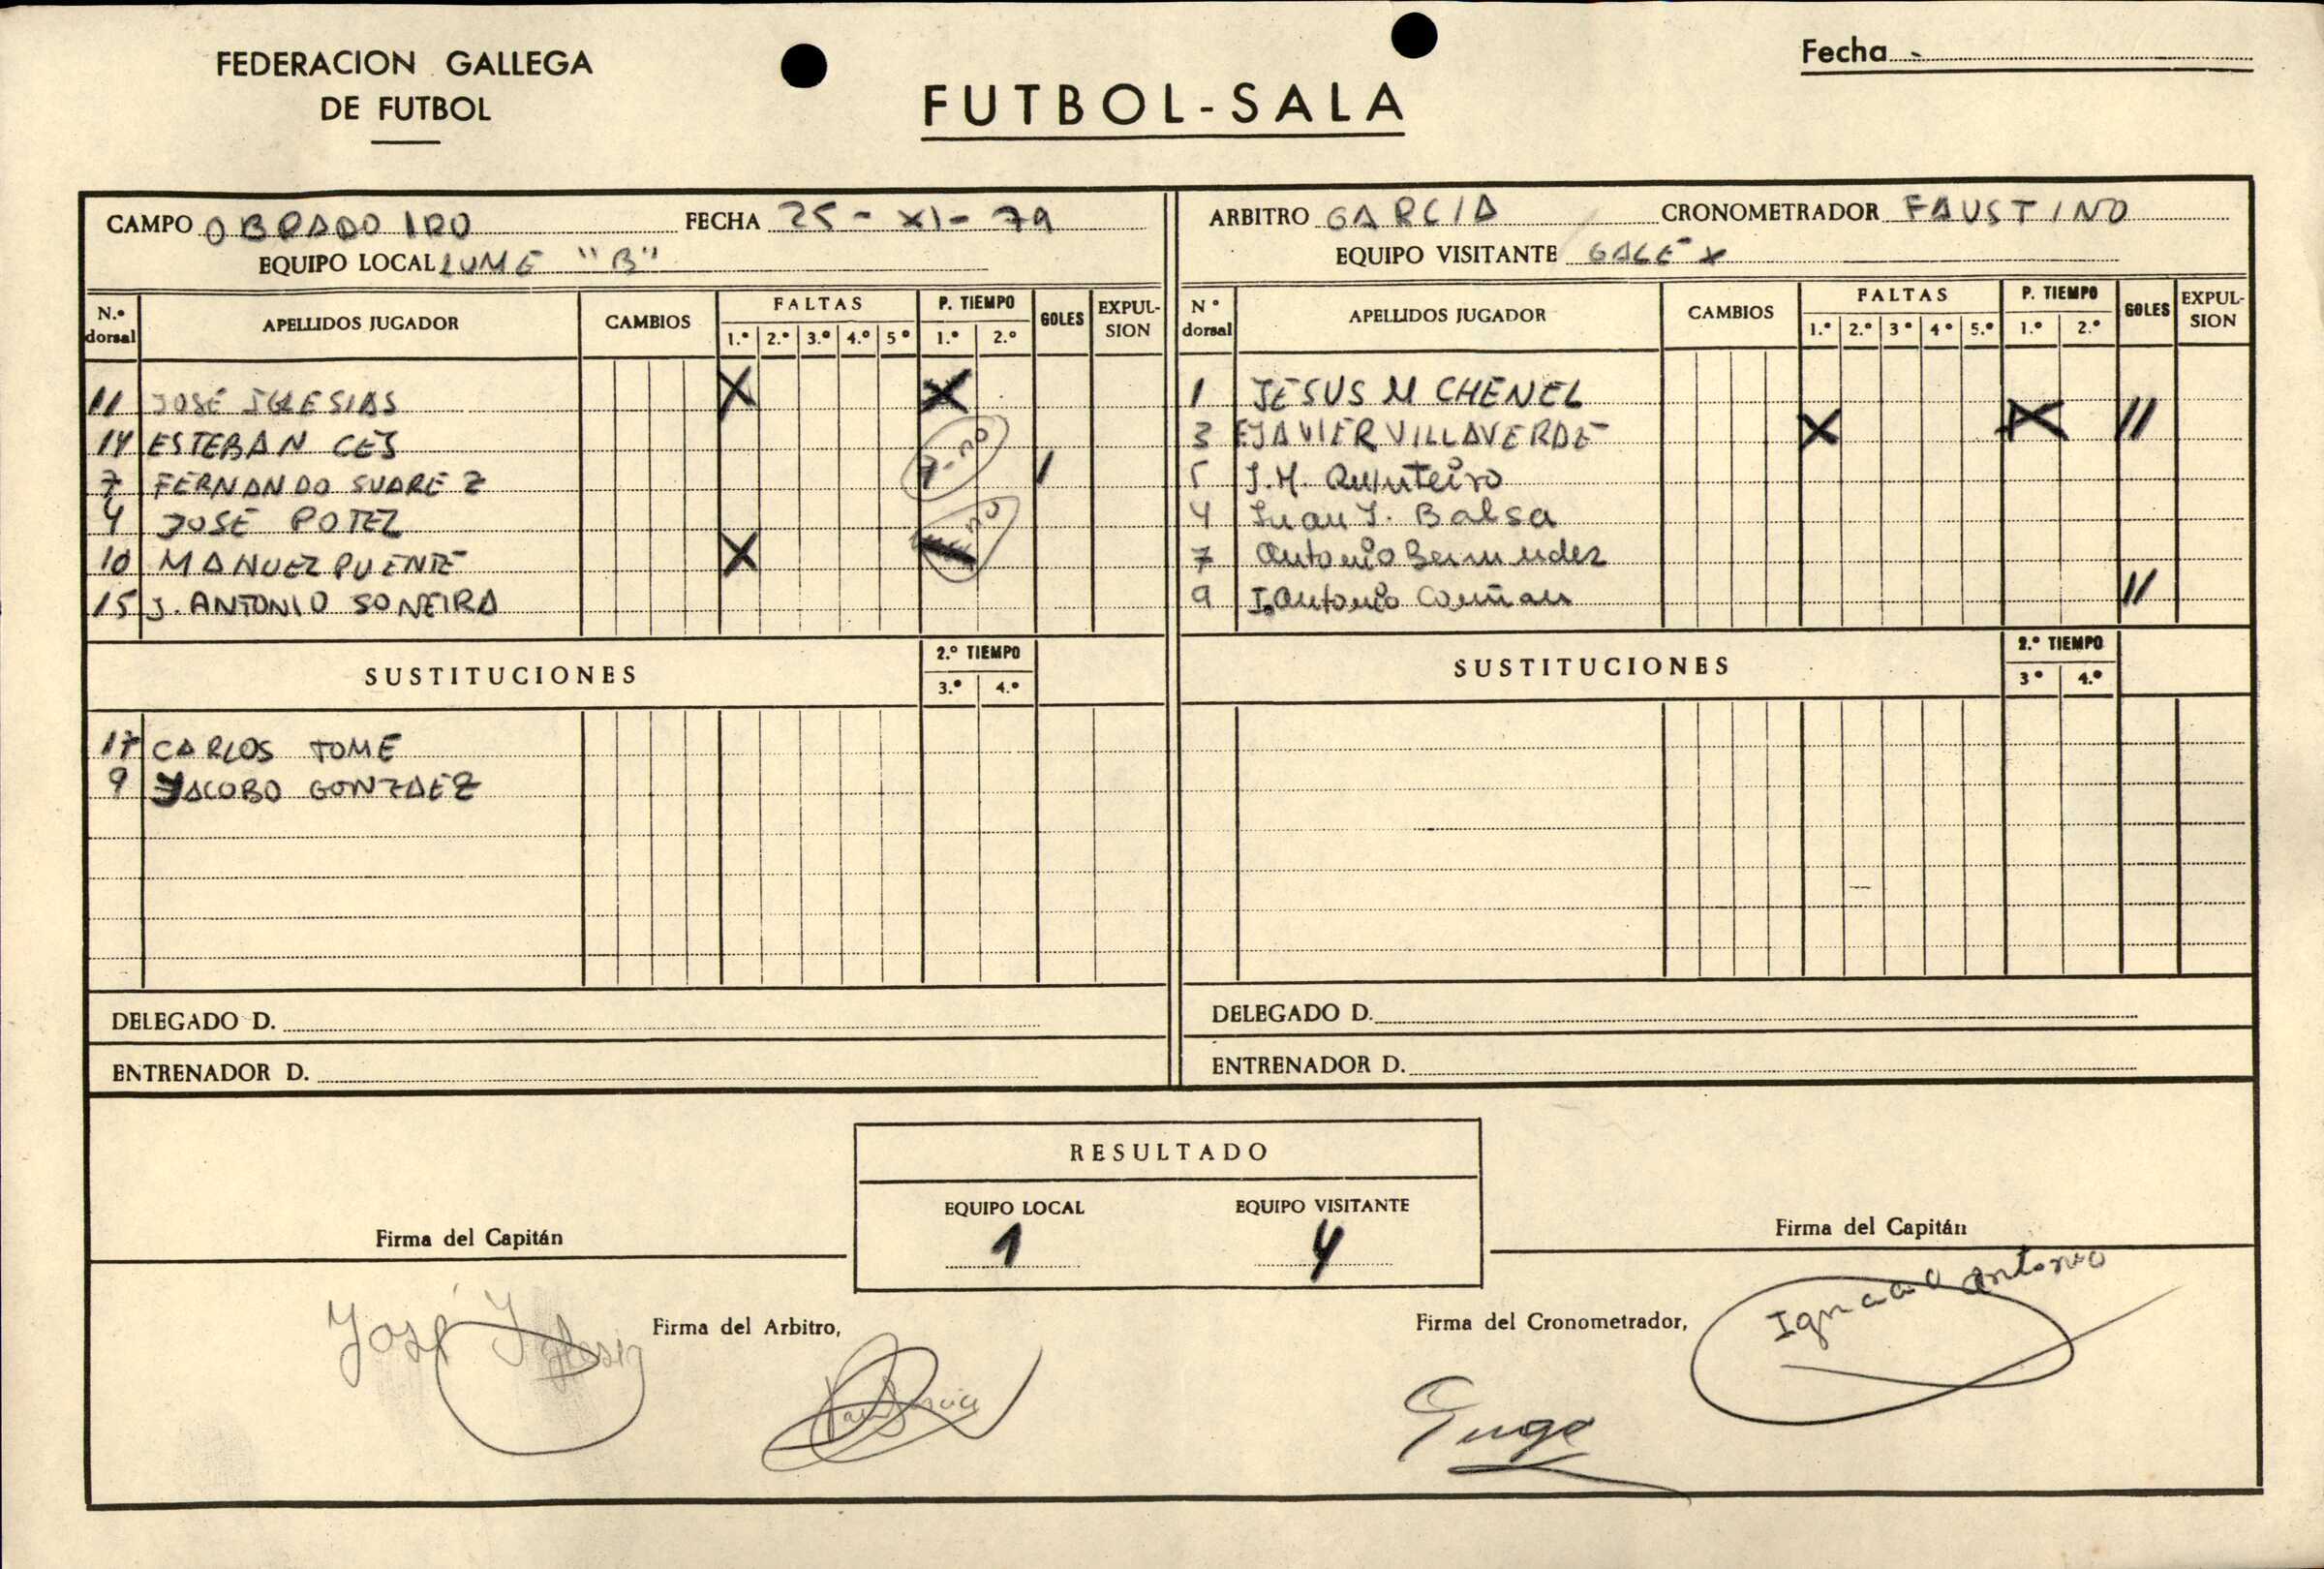 FEDERACION GALLEGA
DE FUTBOL
FUTBOL-SALA
Fecha
CAMPO OBRADOIRO FECHA 25-XI-79
EQUIPO LOCAL LUME "B"
N.º dorsal APELLIDOS JUGADOR CAMBIOS FALTAS 1.º 2.º 3.º 4.º 5º P. TIEMPO 1.º 2.º GOLES EXPULSION
11 JOSÉ IGLESIAS X X
14 ESTEBAN CES
7 FERNANDO SUAREZ no 1
4 JOSE POTEL
10 MANUEL PUENTE X no
15 J. ANTONIO SONEIRA
SUSTITUCIONES 2.º TIEMPO 3.º 4.º
17 CARLOS TOME
9 JACOBO GONZAEZ
DELEGADO D.
ENTRENADOR D.
ARBITRO GARCIA CRONOMETRADOR FAUSTINO
EQUIPO VISITANTE GALEX
Nº dorsal APELLIDOS JUGADOR CAMBIOS FALTAS 1.º 2.º 3º 4º 5.º P. TIEMPO 1.º 2.º GOLES EXPULSION
1 JESUS M CHENEL
3 FJAVIER VILLAVERDE X X 11
5 J.M. Quinteiro
4 Juan J. Balsa
7 Antonio Bermudez
9 I. Antonio 11
SUSTITUCIONES 2.º TIEMPO 3º 4.º
DELEGADO D.
ENTRENADOR D.
RESULTADO
EQUIPO LOCAL EQUIPO VISITANTE
1 4
Firma del Capitán
José Iglesia
Firma del Arbitro,
Firma del Cronometrador,
Firma del Capitán
Ignacio Antonio